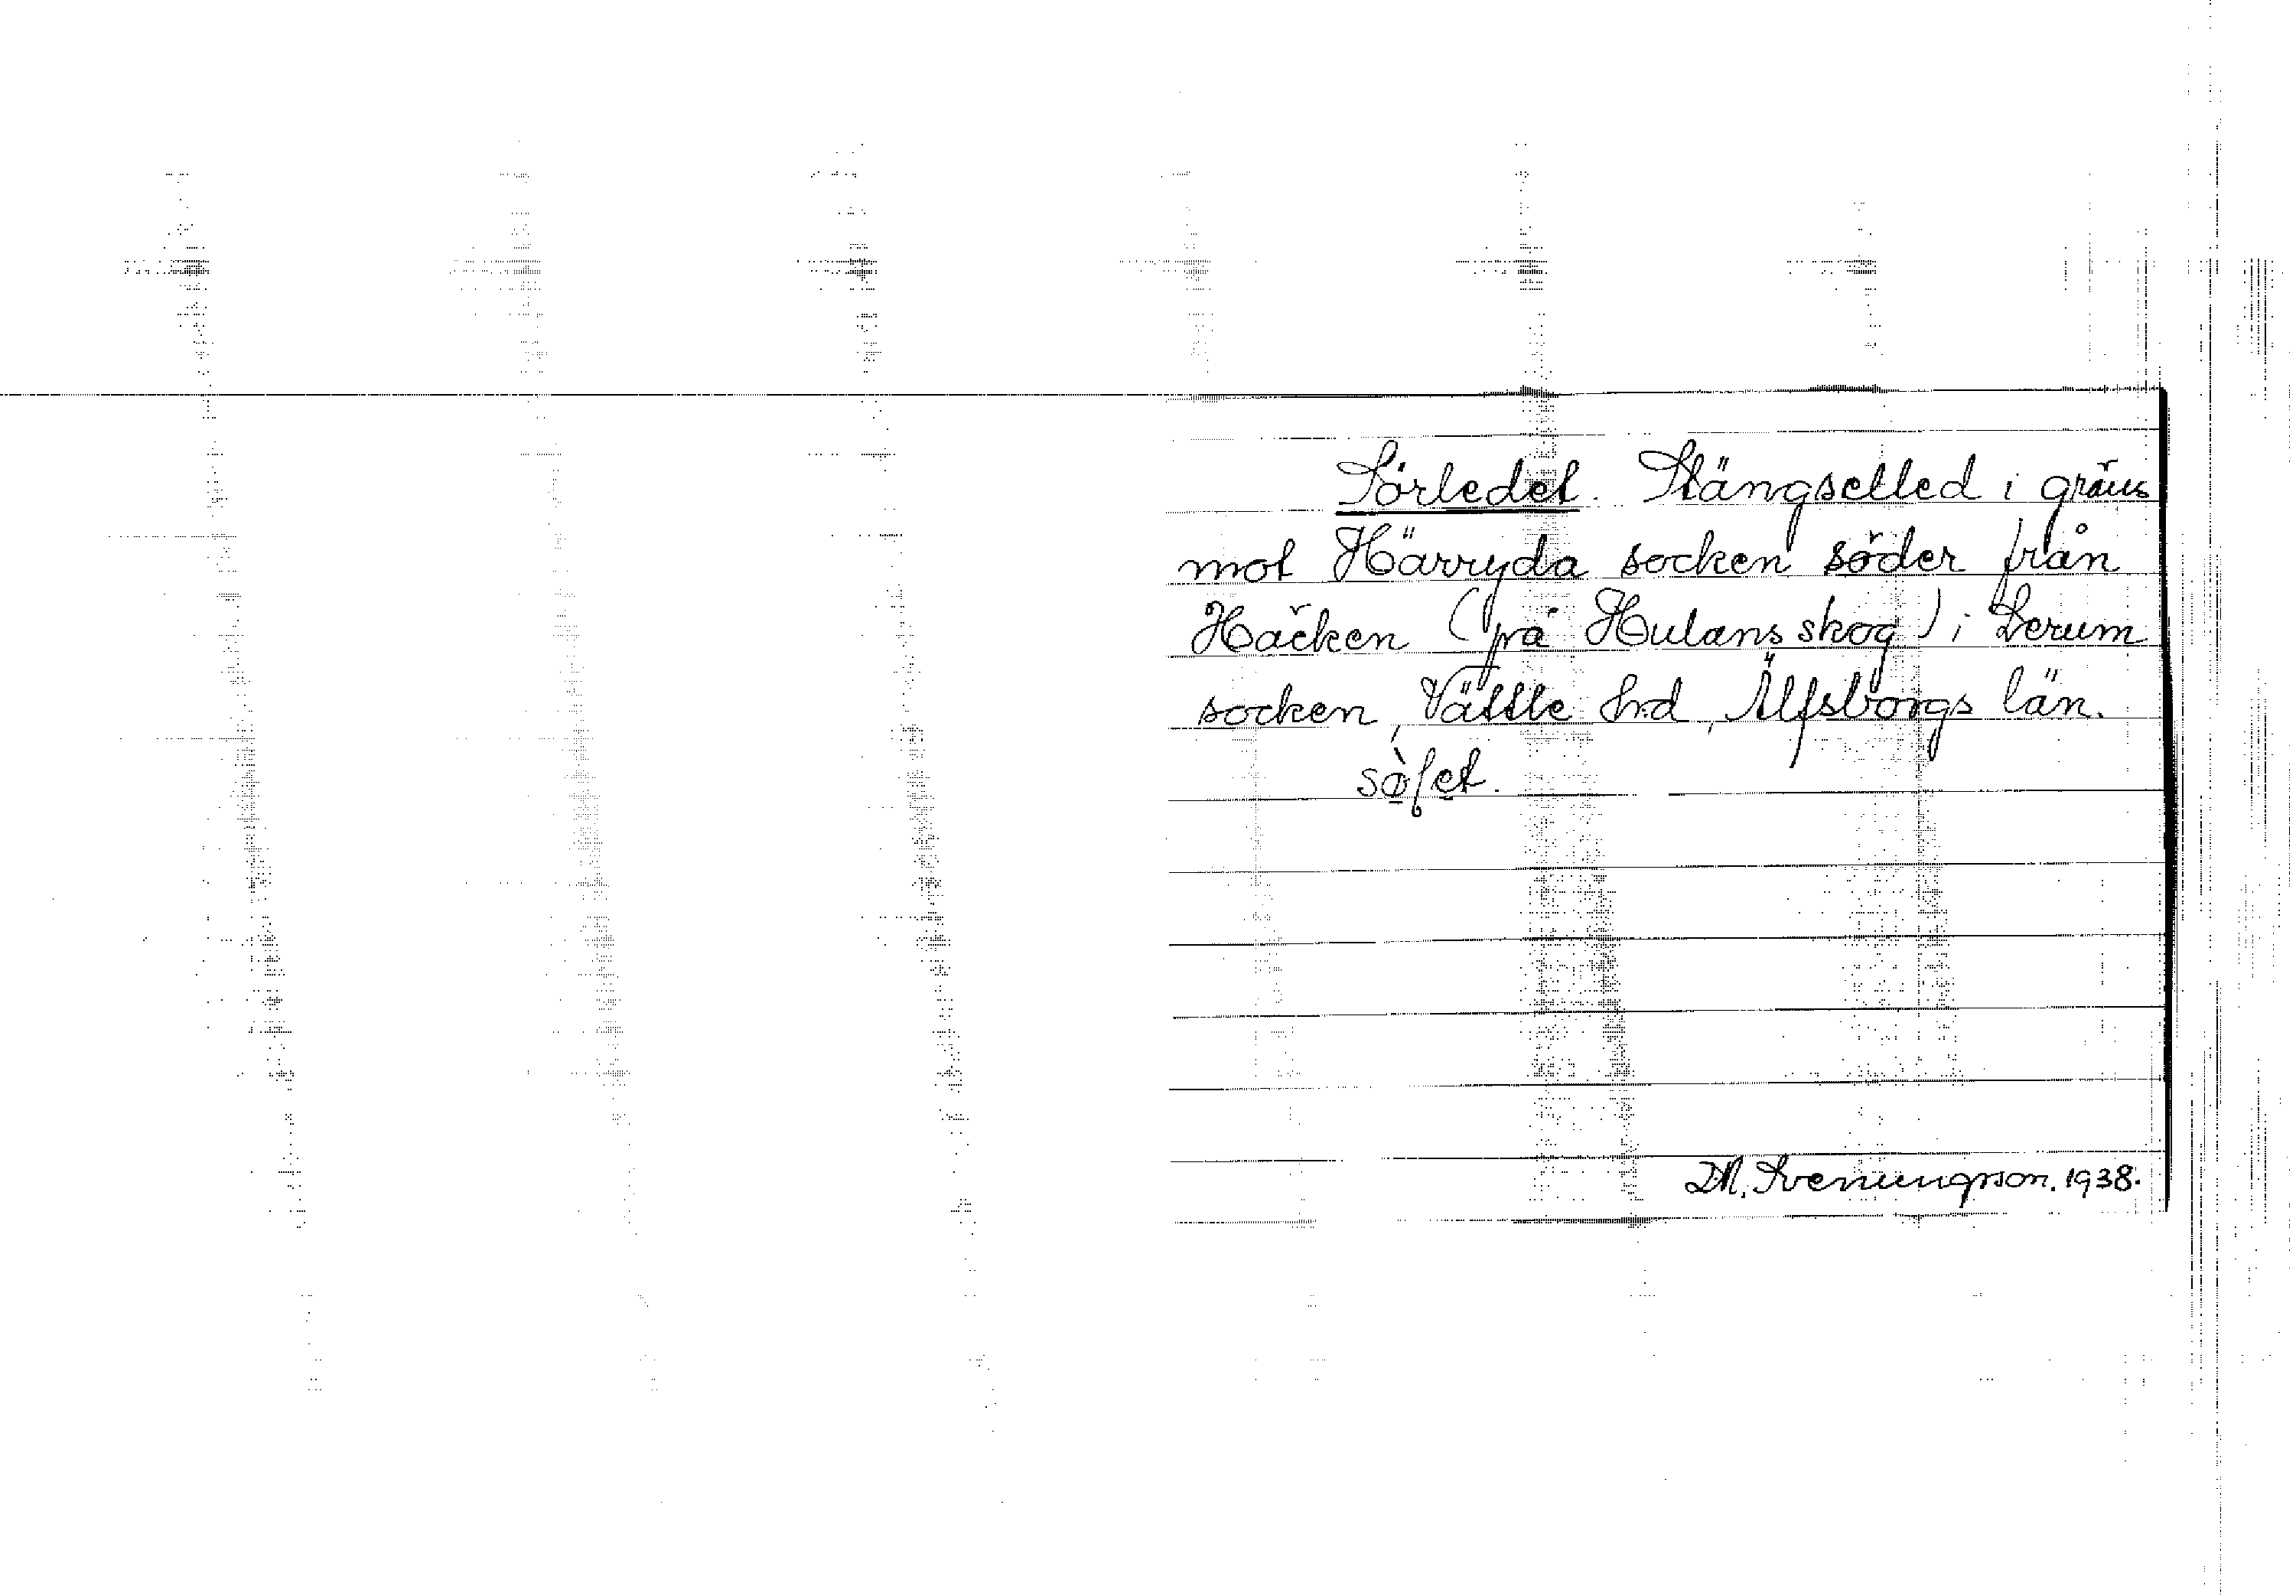 Sörledet. Stängselled i gräns
mot Härryda socken söder från
Häcken (på Hulans skog) i Lerum
socken, Vättle hrd, Älfsborgs län.
M. Svenungsson. 1938.